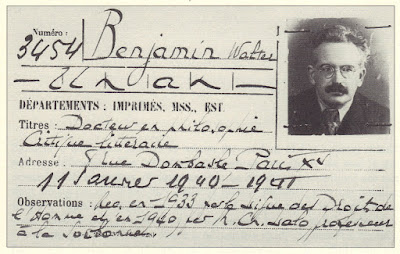 Numéro :
3454 Benjamin Walter
DÉPARTEMENTS : IMPRIMÉS, MSS., EST.
Titres : Docteur en philosophie
Critique littéraire
Adresse : rue Dombasle Paris XV
11 Janvier 1940-1941
Observations : en 1933 la Ligue des Droits de
l'Homme et en 1940 M. Ch. Lalo professeur
à la Sorbonne